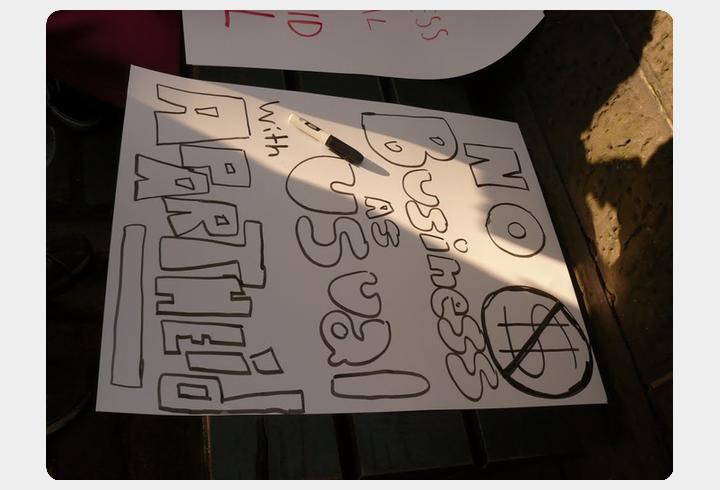 NO $
Business
AS
Usual
with
APARTHEid